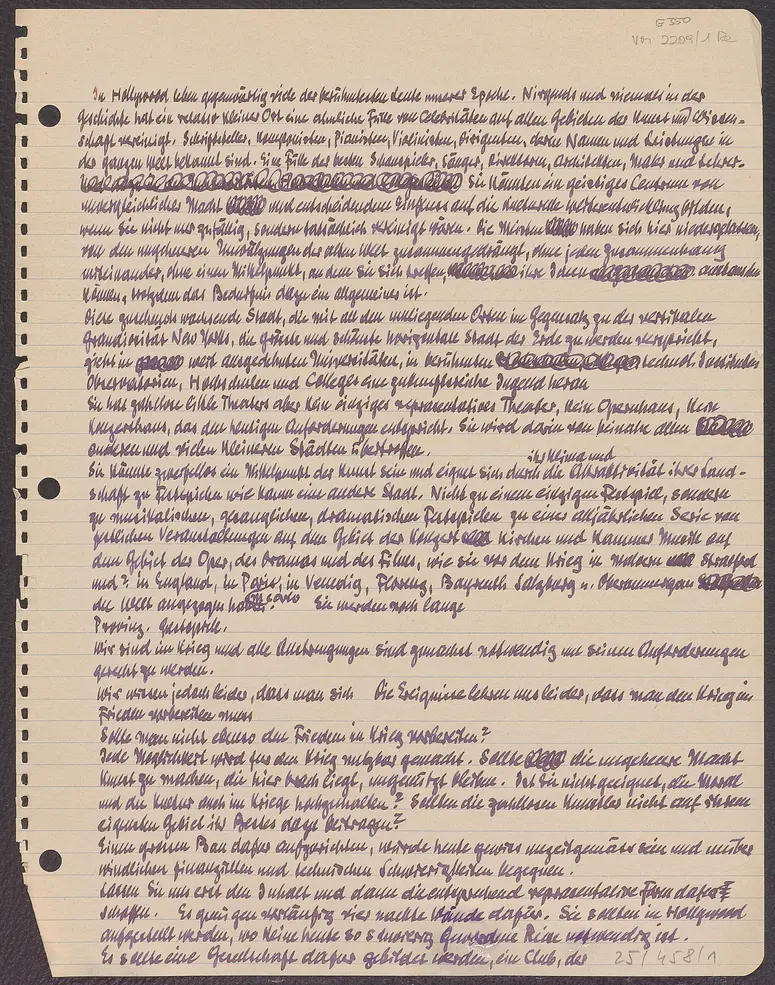 E 350
VM 2209/1 Re
In Hollywood leben gegenwärtig viele der berühmtesten Leute unserer Epoche. Nirgends und niemals in der
Geschichte hat ein relativ kleiner Ort eine ähnliche Fülle von Celebritäten auf allen Gebieten der Kunst und Wissen-
schaft vereinigt. Schriftsteller, Komponisten, Pianisten, Violinisten, Dirigenten, deren Namen und Leistungen in
der ganzen Welt bekannt sind. Eine Fülle der besten Schauspieler, Sänger, Direktoren, Architekten, Maler und Lehrer.
Sie könnten ein geistiges Centrum von
unvergleichlicher Macht und entscheidendem Einfluss auf die kulturelle Weiterentwicklung bilden,
wenn Sie nicht nur zufällig, sondern tatsächlich vereinigt wären. Die Meisten haben sich hier niedergelassen,
von den ungeheuren Umwälzungen der alten Welt zusammengedrängt, ohne jeden Zusammenhang
miteinander, ohne einen Mittelpunkt, an dem Sie sich treffen, ihre Ideen austauschen
können, trotzdem das Bedürfnis dazu ein allgemeines ist.
Diese zusehends wachsende Stadt, die mit all den umliegenden Orten im Gegensatz zu der vertikalen
Grandiosität New Yorks, die grösste und schönste horizontale Stadt der Erde zu werden verspricht,
zieht in weit ausgedehnten Universitäten, in berühmten technol. Instituten
Observatorien, Hochschulen und Colleges eine zukunftsreiche Jugend heran
Sie hat zahllose little Theaters aber kein einziges repräsentatives Theater, kein Opernhaus, kein
Konzerthaus, das den heutigen Anforderungen entspricht. Sie wird darin von beinahe allen
anderen und vielen kleineren Städten übertroffen.
ihr Klima und
Sie könnte zweifellos ein Mittelpunkt der Kunst sein und eignet sich durch die Attraktivität ihrer Land-
schaft zu Festspielen wie kaum eine andere Stadt. Nicht zu einem einzigen Festspiel, sondern
zu musikalischen, gesanglichen, dramatischen Festspielen zu einer alljährlichen Serie von
festlichen Veranstaltungen auf dem Gebiet der Konzert Kirchen und Kammer Musik auf
dem Gebiet der Oper, des Dramas und des Filmes, wie sie vor dem Krieg in Stratford
und ? in England, in Paris, in Venedig, Florenz, Bayreuth Salzburg u. Oberammergau
die Welt angezogen Sie werden noch lange
Provinz. Gastspiele.
Wir sind im Krieg und alle Anstrengungen sind zunächst notwendig um seinen Anforderungen
gerecht zu werden.
Wir wissen jedoch leider, dass man sich Die Ereignisse lehren uns leider, dass man den Krieg im
Frieden vorbereiten muss
Sollte man nicht ebenso den Frieden im Krieg vorbereiten?
Jede Möglichkeit wird für den Krieg nutzbar gemacht. Sollte die ungeheure Macht
Kunst zu machen, die hier brach liegt, ungenützt bleiben. Ist Sie nicht geeignet, die Moral
und die Kultur auch im Kriege hochzuhalten? Sollten die zahllosen Künstler nicht auf ihrem
eigensten Gebiet ihr Bestes dazu beitragen?
Einen grossen Bau dafür aufzurichten, würde heute gewiss unzeitgemäss sein und unüber
windlichen finanziellen und technischen Schwierigkeiten begegnen.
Lassen Sie uns erst den Inhalt und dann die entsprechend repräsentative Form dafür
schaffen. Es genügen vorläufig vier nackte Wände dafür. Sie sollten in Hollywood
aufgestellt werden, wo keine heute so schwierig gewordene Reise notwendig ist.
Es sollte eine Gesellschaft dafür gebildet werden, ein Club, der
25/458/1